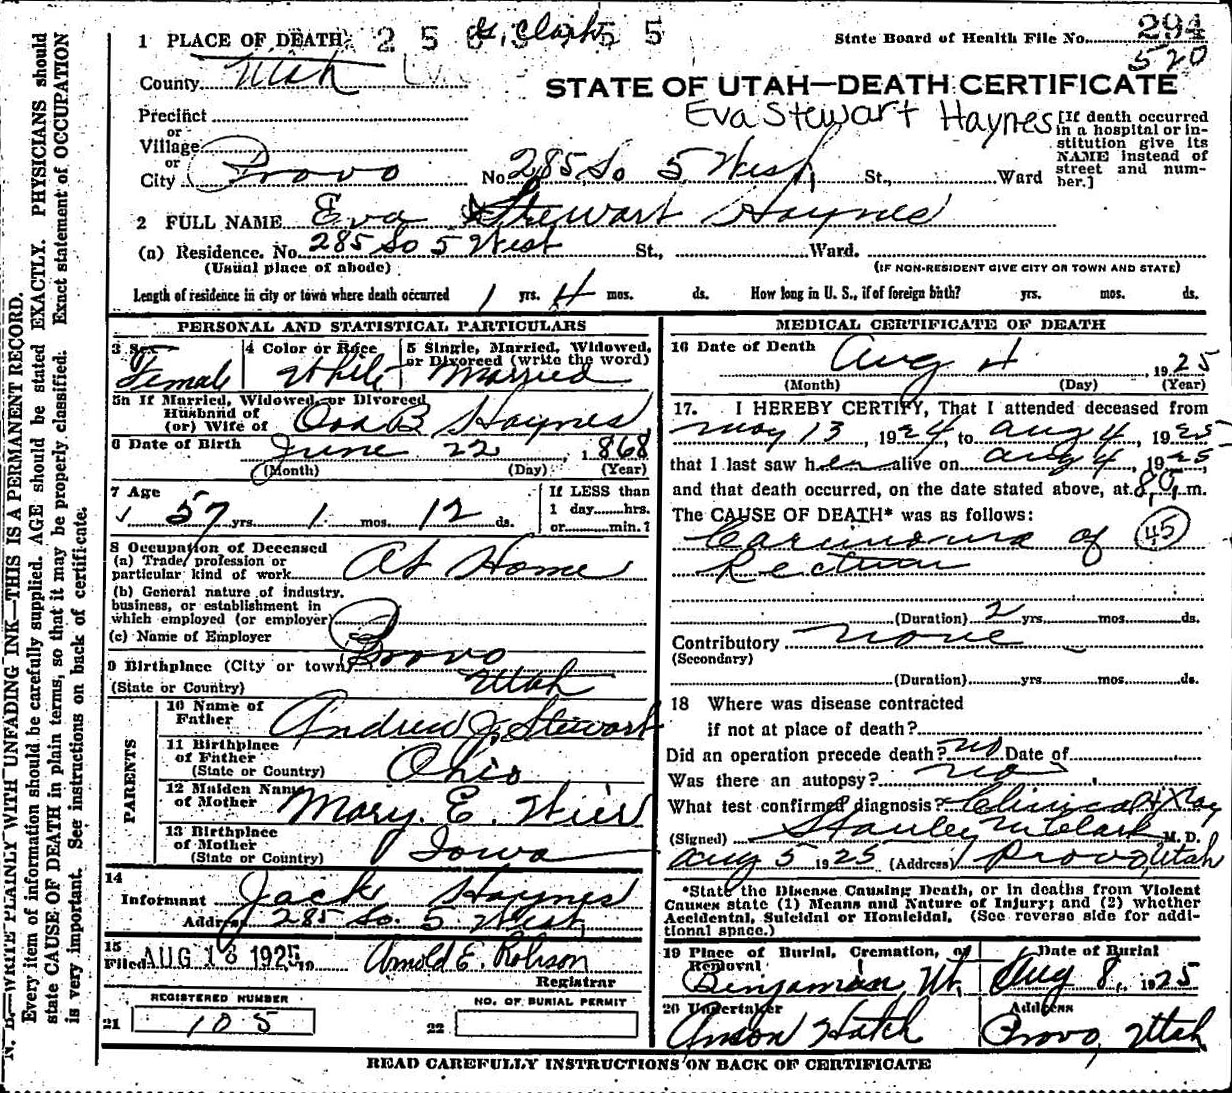 294
520
State Board of Health File No.
1 PLACE OF DEATH
County Utah
STATE OF UTAH—DEATH CERTIFICATE
Eva Stewart Haynes
[If death occurred in a hospital or institution give its NAME instead of street and number.]
Precinct
or
Village
or
City Provo No. 285 So 5 West St., Ward
2 FULL NAME Eva Stewart Haynes
(a) Residence. No. 285 So 5 West St., Ward.
(Usual place of abode) (IF NON-RESIDENT GIVE CITY OR TOWN AND STATE)
Length of residence in city or town where death occurred 1 yrs. 4 mos. ds. How long in U. S., if of foreign birth? yrs. mos. ds.
PERSONAL AND STATISTICAL PARTICULARS
3 Sex 4 Color or Race 5 Single, Married, Widowed, or Divorced (write the word)
Female White Married
5a If Married, Widowed, or Divorced
Husband of
(or) Wife of B Haynes
6 Date of Birth June 22, 1868
(Month) (Day) (Year)
7 Age If LESS than
57 yrs. 1 mos. 12 ds. 1 day hrs.
or min.?
8 Occupation of Deceased
(a) Trade, profession or
particular kind of work At Home
(b) General nature of industry,
business, or establishment in
which employed (or employer)
(c) Name of Employer
9 Birthplace (City or town) Provo
(State or Country) Utah
PARENTS
10 Name of
Father Andrew J. Stewart
11 Birthplace
of Father
(State or Country) Ohio
12 Maiden Name
of Mother Mary E. Wier
13 Birthplace
of Mother
(State or Country) Iowa
14
Informant Jack Haynes
Address 285 So. 5 West
15
Filed AUG 13 1925, 19 Arnold E. Robison
Registrar
REGISTERED NUMBER NO. OF BURIAL PERMIT
21 105 22
MEDICAL CERTIFICATE OF DEATH
16 Date of Death Aug 4, 1925
(Month) (Day) (Year)
17. I HEREBY CERTIFY, That I attended deceased from
May 13, 1924, to Aug 4, 1925
that I last saw her alive on Aug 4, 1925
and that death occurred, on the date stated above, at m.
The CAUSE OF DEATH* was as follows:
Carcinoma of 45
Rectum
(Duration) 2 yrs. mos. ds.
Contributory none
(Secondary)
(Duration) yrs. mos. ds.
18 Where was disease contracted
if not at place of death?
Did an operation precede death? no Date of
Was there an autopsy? no
What test confirmed diagnosis? Clinical & X Ray
(Signed) Stanley M Clark M. D.
Aug 5 1925 (Address) Provo, Utah
*State the Disease Causing Death, or in deaths from Violent
Causes state (1) Means and Nature of Injury; and (2) whether
Accidental, Suicidal or Homicidal. (See reverse side for addi-
tional space.)
19 Place of Burial, Cremation, or Removal Date of Burial
Benjamin, Ut. Aug 8, 1925
20 Undertaker Address
Anson Hatch Provo, Utah
READ CAREFULLY INSTRUCTIONS ON BACK OF CERTIFICATE
N. B.—WRITE PLAINLY WITH UNFADING INK—THIS IS A PERMANENT RECORD.
Every item of information should be carefully supplied. AGE should be stated EXACTLY. PHYSICIANS should
state CAUSE OF DEATH in plain terms, so that it may be properly classified. Exact statement of OCCUPATION
is very important. See instructions on back of certificate.